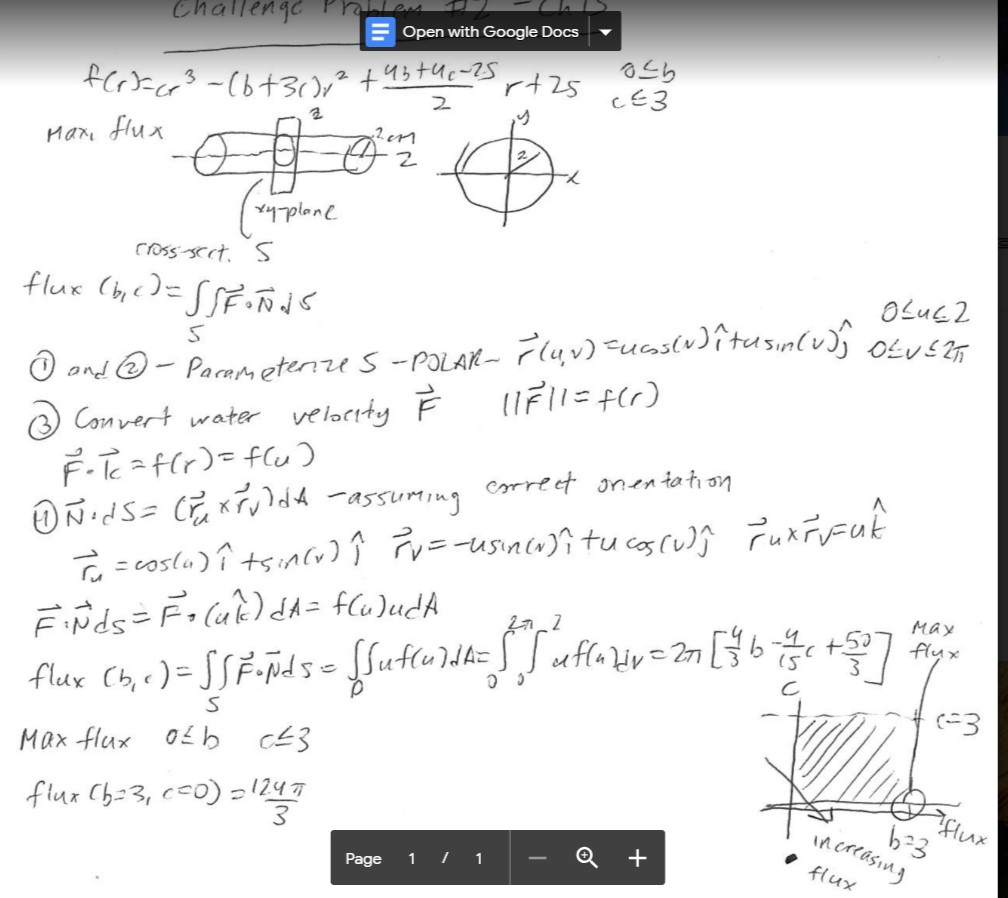 Challenge Problem #2 - Ch15
Open with Google Docs
f(r)=cr³ -(b+3c)r² + (4b+4c-25)/2 r+25 0≤b
c≤3
Max. flux
2
2cm
z
y
2
x
xy-plane
cross-sect. S
flux (b,c)= ∬_S F⃗·N⃗dS
① and ② - Parameterize S -POLAR- r⃗(u,v)=ucos(v)î+usin(v)ĵ 0≤u≤2
0≤v≤2π
③ Convert water velocity F⃗ ||F⃗||=f(r)
F⃗·k⃗=f(r)=f(u)
④ N⃗·dS= (r⃗u×r⃗v)dA -assuming correct orientation
r⃗u =cos(u)î +sin(v)ĵ r⃗v=-usin(v)î+ucos(v)ĵ r⃗u×r⃗v=uk̂
F⃗·N⃗ds=F⃗·(uk̂)dA= f(u)udA
flux (b,c)=∬_S F⃗·N⃗ds= ∬_D uf(u)dA= ∫_0^2π ∫_0^2 uf(u)dv=2π[4/3 b -4/15 c +50/3]
Max flux
Max flux 0≤b c≤3
flux (b=3, c=0) = 124π/3
c
c=3
b=3
flux
increasing
flux
Page 1 / 1